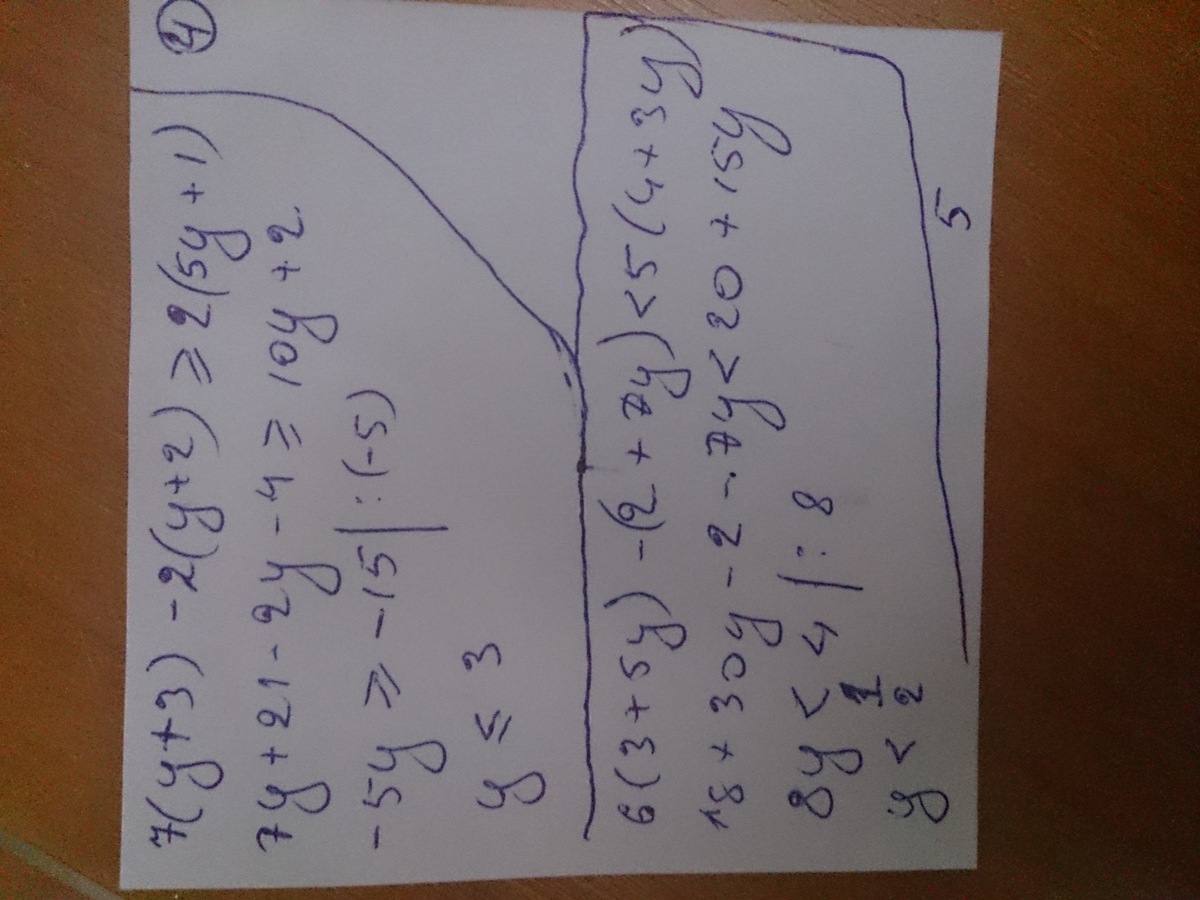 7(y+3) -2(y+2) ≥ 2(5y+1)
7y+21-2y-4 ≥ 10y+2
-5y ≥ -15 | :(-5)
y ≤ 3
6(3+5y) -(2+7y)<5(4+3y)
18+30y-2-7y<20+15y
8y < 4 | : 8
y < 1/2
5